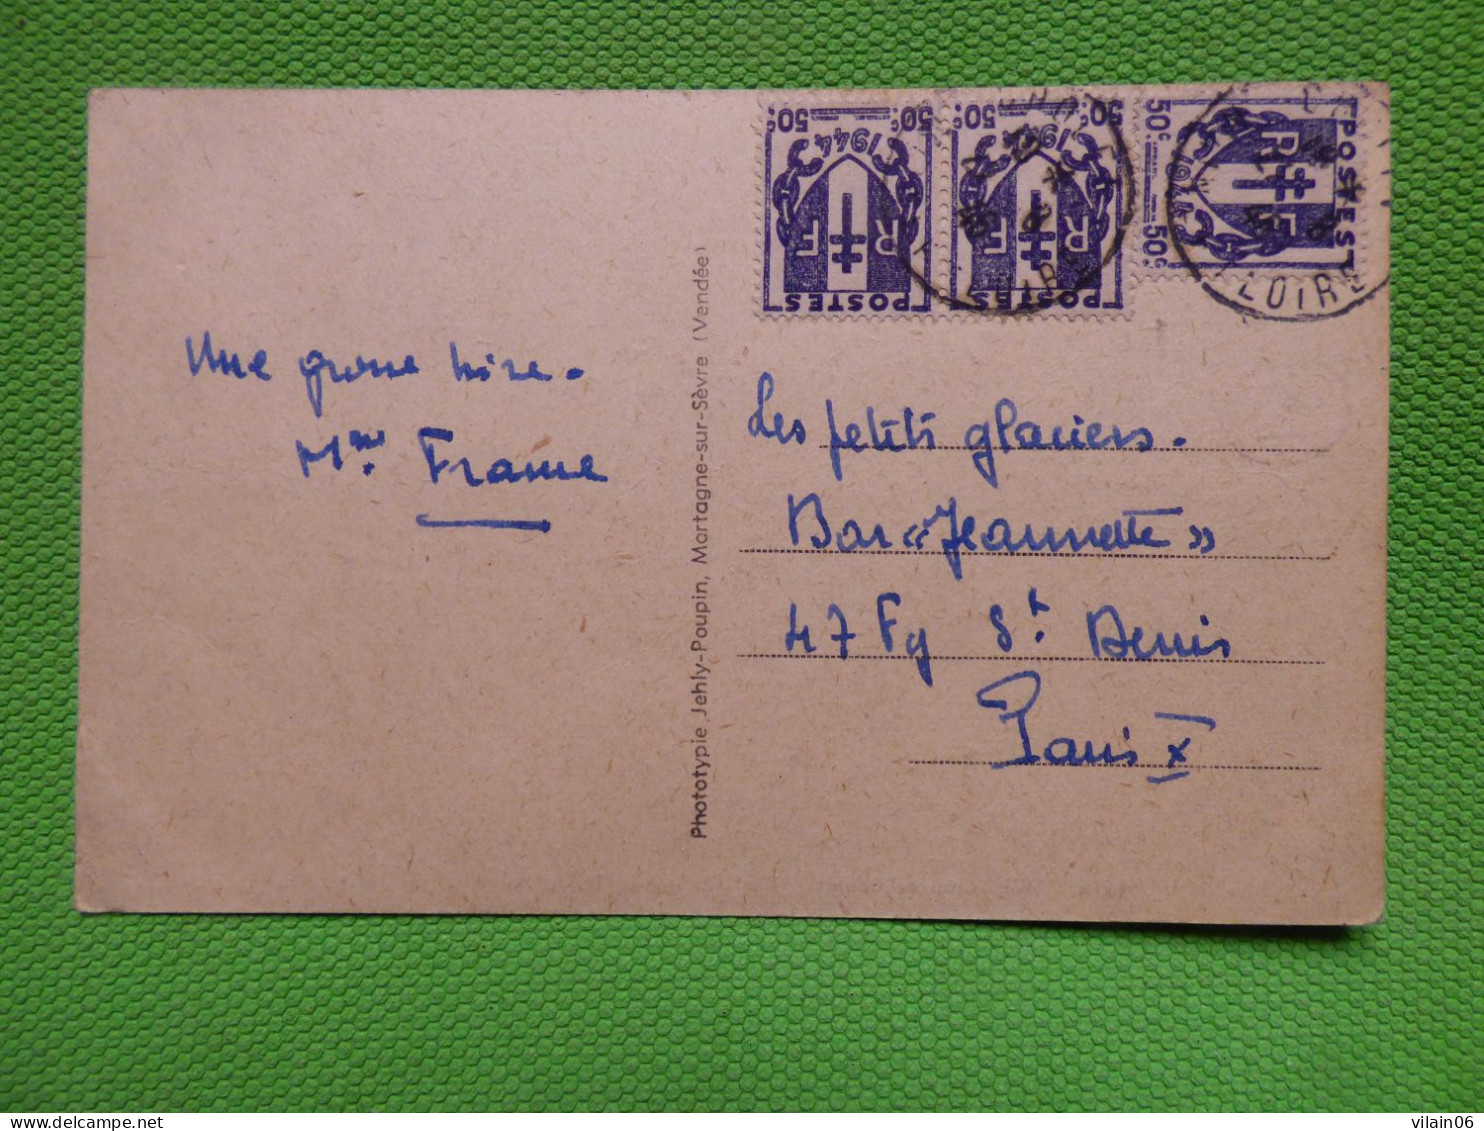 Une grosse bise.
Mme France
Phototypie Jehly-Poupin, Mortagne-sur-Sèvre (Vendée)
50c 50c
1944
RF
POSTES
50c 50c
1944
RF
POSTES
50c 50c
1944
RF
POSTES
LOIRE
LOIRE
Les petits glaciers.
Bar «Jeannette»
47 Fg St. Denis
Paris X
vilain06